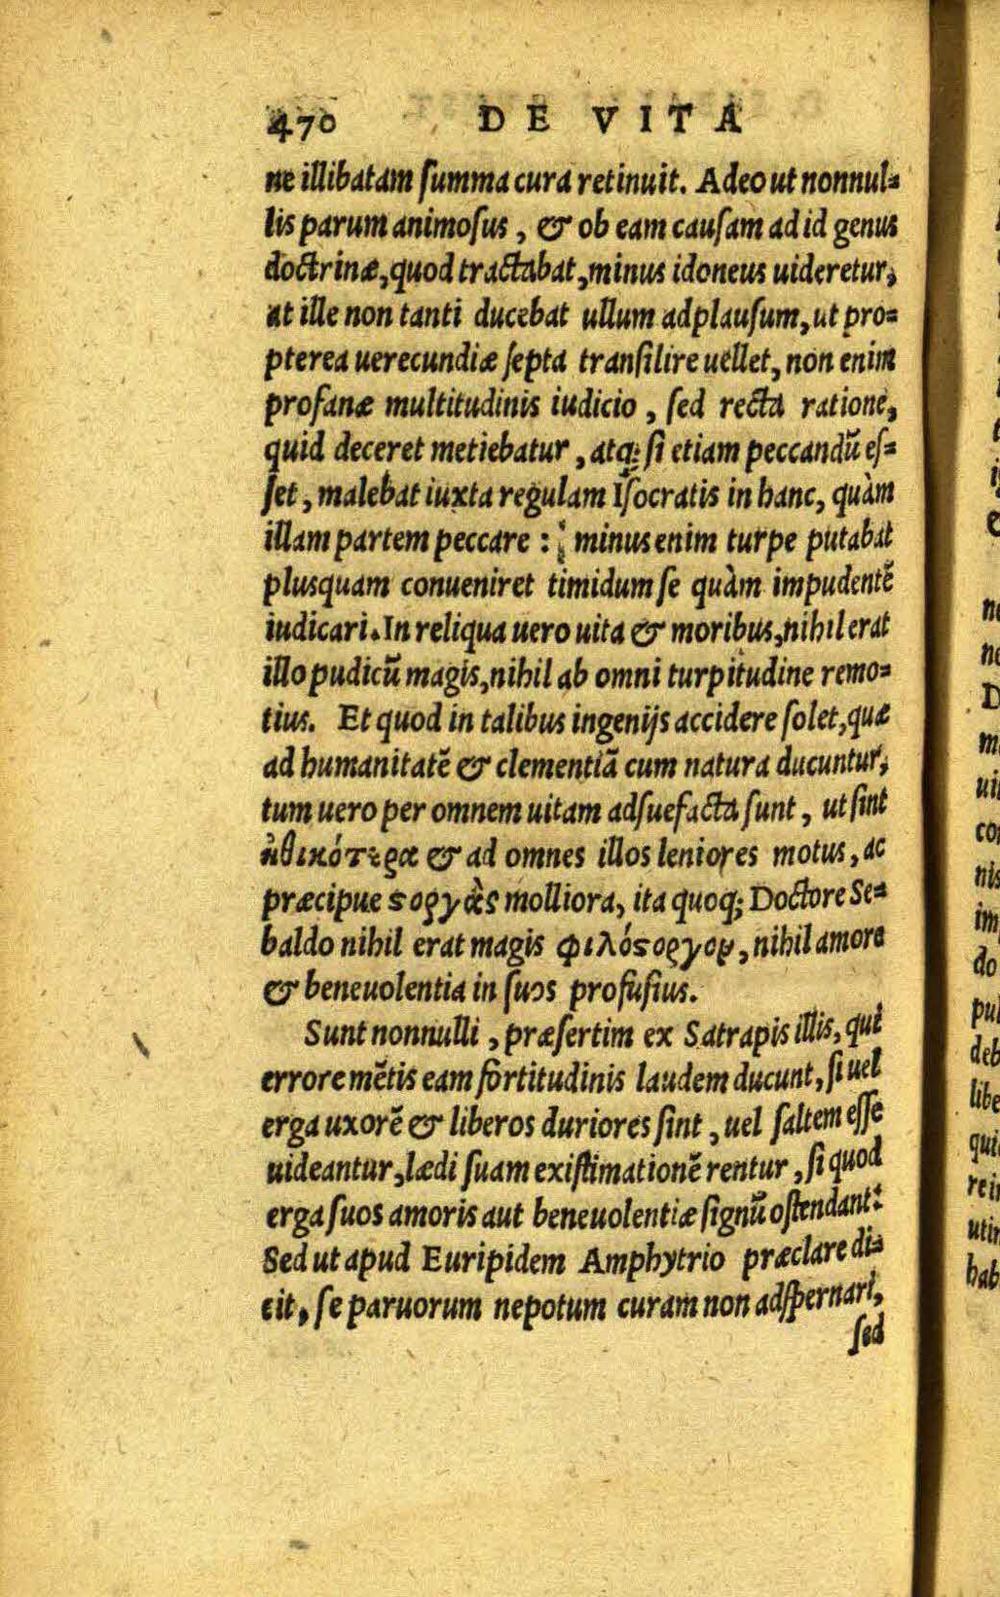 470 DE VITA
ne illibatam ſumma cura retinuit. Adeo ut nonnul⸗
lis parum animoſus, & ob eam cauſam ad id genus
doctrinæ, quod tractabat, minus idoneus uideretur,
at ille non tanti ducebat ullum adplauſum, ut pro⸗
pterea uerecundiæ ſepta tranſilire uellet, non enim
profanæ multitudinis iudicio, ſed recta ratione,
quid deceret metiebatur, atq; ſi etiam peccandũ eſ⸗
ſet, malebat iuxta regulam Iſocratis in hanc, quàm
illam partem peccare: minus enim turpe putabat
plusquam conueniret timidum ſe quàm impudentẽ
iudicari. In reliqua uero uita & moribus, nihil erat
illo pudicũ magis, nihil ab omni turpitudine remo⸗
tius. Et quod in talibus ingenijs accidere ſolet, quæ
ad humanitatẽ & clementiã cum natura ducuntur,
tum uero per omnem uitam adſuefacta ſunt, ut ſint
ἠθικότερα & ad omnes illos leniores motus, ac
præcipue ϛοργὰς molliora, ita quoq; Doctore Se⸗
baldo nihil erat magis φιλόϛοργον, nihil amore
& beneuolentia in ſuos profuſius.
Sunt nonnulli, præſertim ex Satrapis illis, qui
errore mẽtis eam fortitudinis laudem ducunt, ſi uel
erga uxorẽ & liberos duriores ſint, uel ſaltem eſſe
uideantur, lædi ſuam exiſtimationẽ rentur, ſi quod
erga ſuos amoris aut beneuolentiæ ſignũ oſtendant:
Sed ut apud Euripidem Amphytrio præclare di⸗
cit, ſe paruorum nepotum curam non adſpernari,
ſed